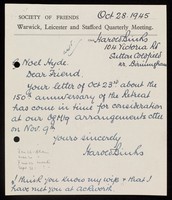 SOCIETY OF FRIENDS
Warwick, Leicester and Stafford Quarterly Meeting.
Oct 28. 1945
Harold Binks
104 Victoria Rd
Sutton Coldfield
nr. Birmingham
Noel Hyde
Dear Friend
Your letter of Oct 23rd about the
150th anniversary of the Retreat
has come in time for consideration
at our QM arrangements cttee
on Nov. 9th
Yours sincerely
Harold Binks
I think you know my wife & that I
have met you at Ackworth.